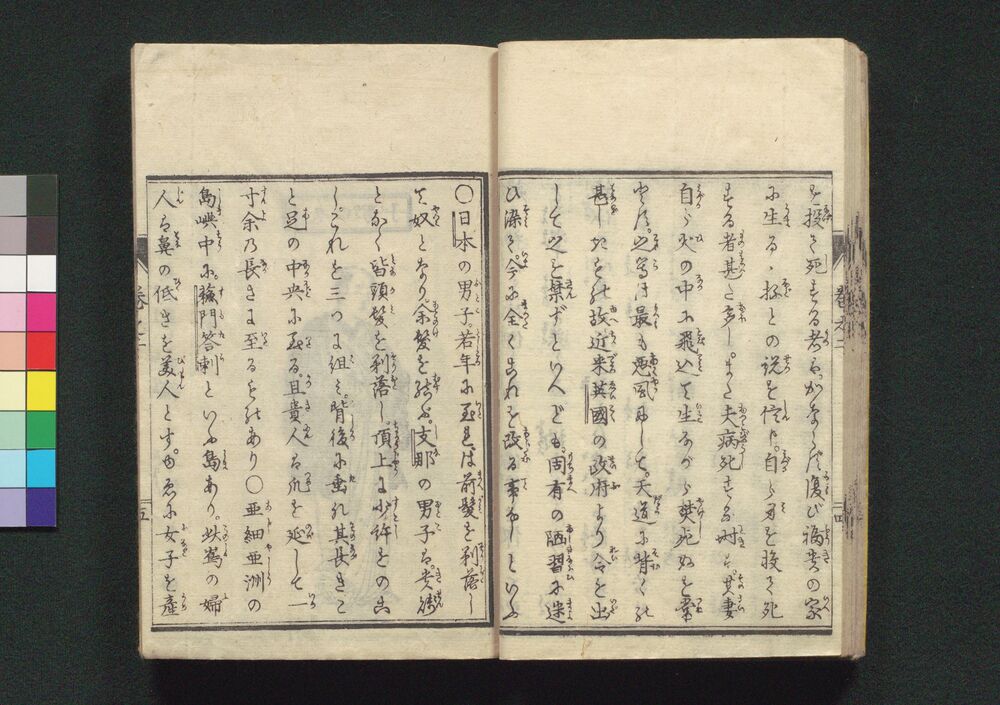 を投て死する者ハかならず復び福貴の家
に生るゝ抔との説を信じ自ら身を投て死
する者甚だ多し。また夫病死する時ハ其妻
自ら火の中に飛込て生ながら焚死ぬを常
とす。之等は最も悪風にして。天道に背く
甚しきを以故近来英國の政府より令を出
して之を禁ずといへども。固有の陋習に迷
ひ染て。今に全くこれを改る事なしといふ
〇日本の男子。若年に至れば前髪を剃落し
て奴となり余髪を結ぶ。支那の男子ハ。貴賎
となく皆頭髪を剃落し。頂上に少許をのこ
しこれを三つに組て。背後に垂れ其長きこ
と足の中央に至る。且貴人ハ爪を延して一
寸余乃長さに至るものあり〇亜細亜洲の
島嶼中に。蘓門答剌といふ島あり。此島の婦
人ハ鼻の低きを美人とす。ゆゑに女子を産
巻之二
四
五